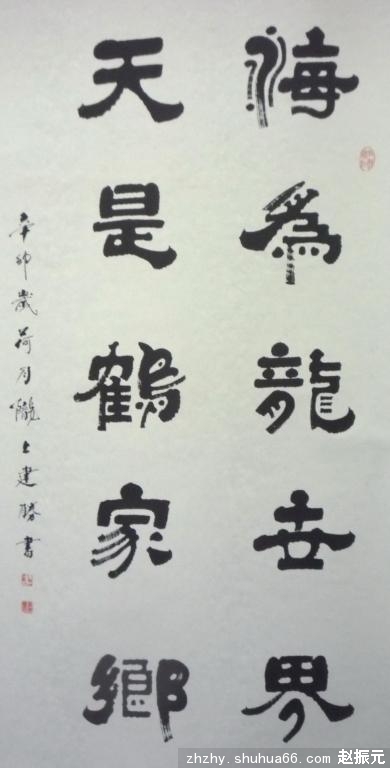 海為龍世界
天是鶴家鄉
辛卯歲荷月隴上建勝書
zhzhy.shuhua66.com 赵振元